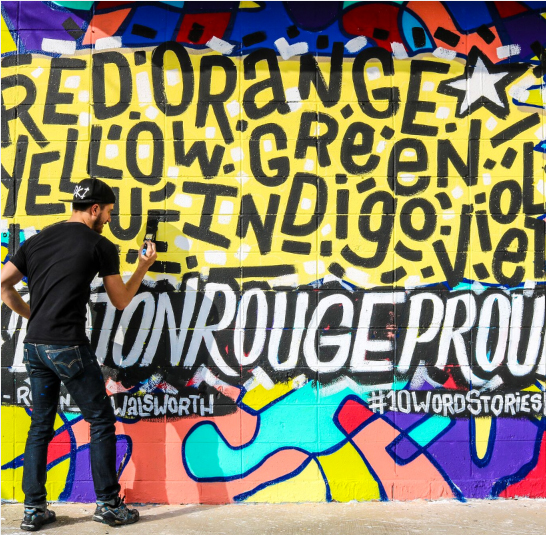 RED·ORaNGE
YeLLOW·GReeN
InDigo·VioLeT
ROUGE PROU
WaLSWORTH
#10WORDSTORIES